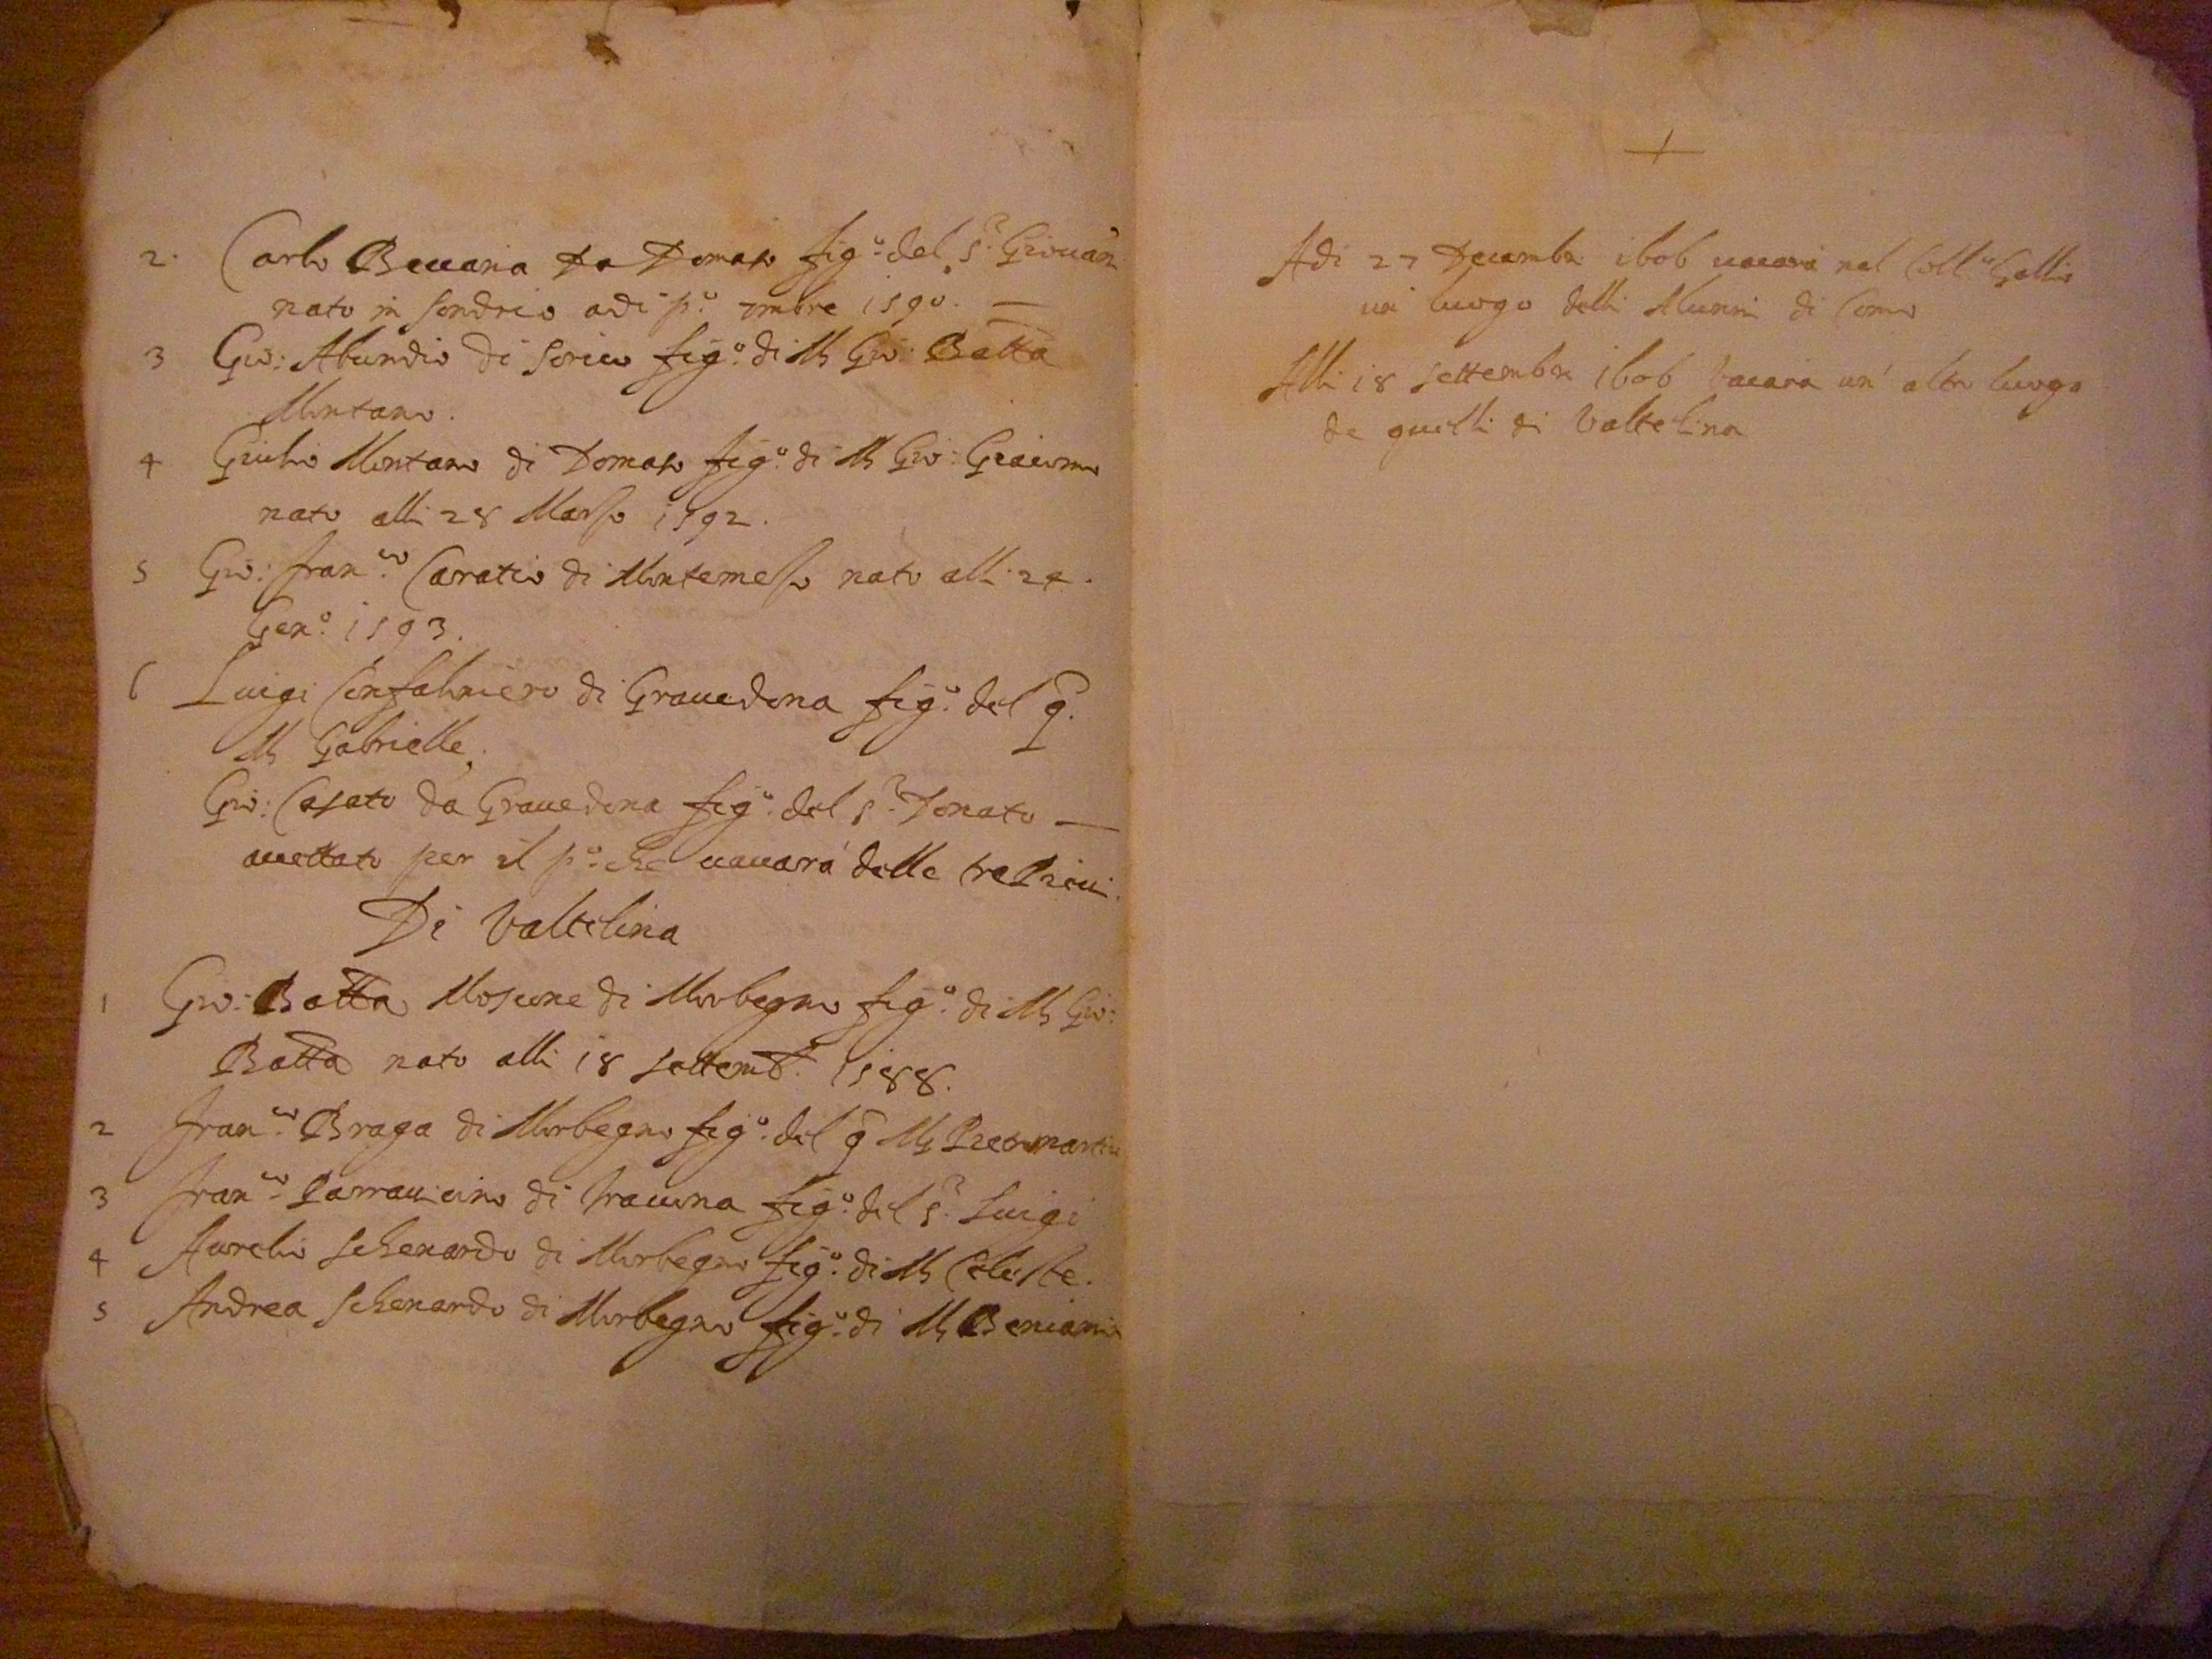 2. Carlo Beccaria da Domaso fig.o del S.r Giovan
nato in Sondrio adi p.o 7mbre 1590. —
3 Gio: Abundio di Sorico fig.o di M Gio: Batta
Montano.
4 Giulio Montano di Domaso fig.o di M Gio: Giacomo
nato alli 28 Marso 1592.
5 Gio: Fran.co Caratio di Montemesso nato alli 24.
Gen.o 1593.
6 Luigi Confaloniero di Gravedona fig.o del q.
M Gabrielle.
Gio: Casato da Gravedona fig.o del S.r Donato —
accettato per il p.o che vacará delle tre Pievi.
Di Valtelina
1 Gio: Batta di Morbegno fig.o di M Gio:
Batta nato alli 18 Settemb. 1588.
2 Fran.co Braga di Morbegno fig.o del q M Pietromartire
3 Fran.co Parravicino di Traona fig.o del S.r Luigi
4 Aurelio Schenardo di Morbegno fig.o di M Celeste.
5 Andrea Schenardo di Morbegno fig.o di M Beniamin
+
Adi 27 Decembre 1606 vacará nel Coll.o Gallio
un luogo delli Alunni di Como
Alli 18 Settembre 1606 Vacará un' altro luogo
de quelli di Valtelina